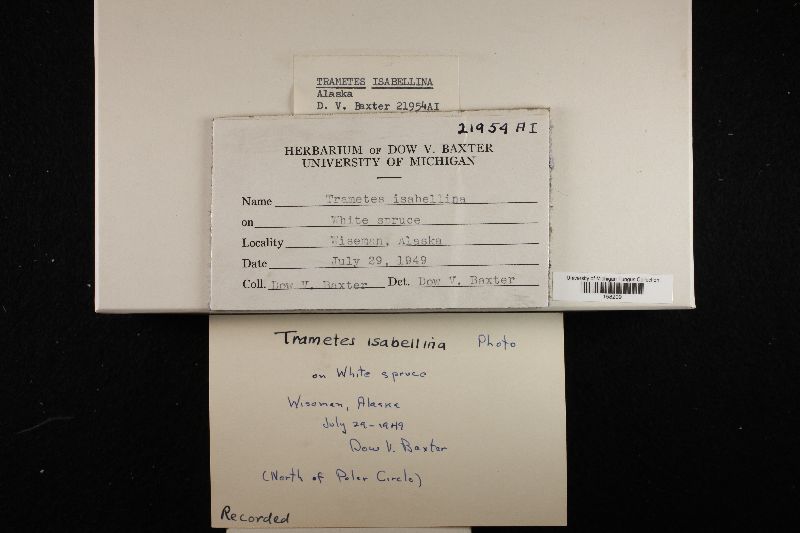 TRAMETES ISABELLINA
Alaska
D. V. Baxter 21954AI
21954 AI
HERBARIUM OF DOW V. BAXTER
UNIVERSITY OF MICHIGAN
Name Trametes isabellina
on White spruce
Locality Wiseman, Alaska
Date July 29, 1949
Coll. Dow V. Baxter Det. Dow V. Baxter
University of Michigan Fungus Collection
Trametes isabellina Photo
on White spruce
Wiseman, Alaska
July 29-1949
Dow V. Baxter
(North of Polar Circle)
Recorded